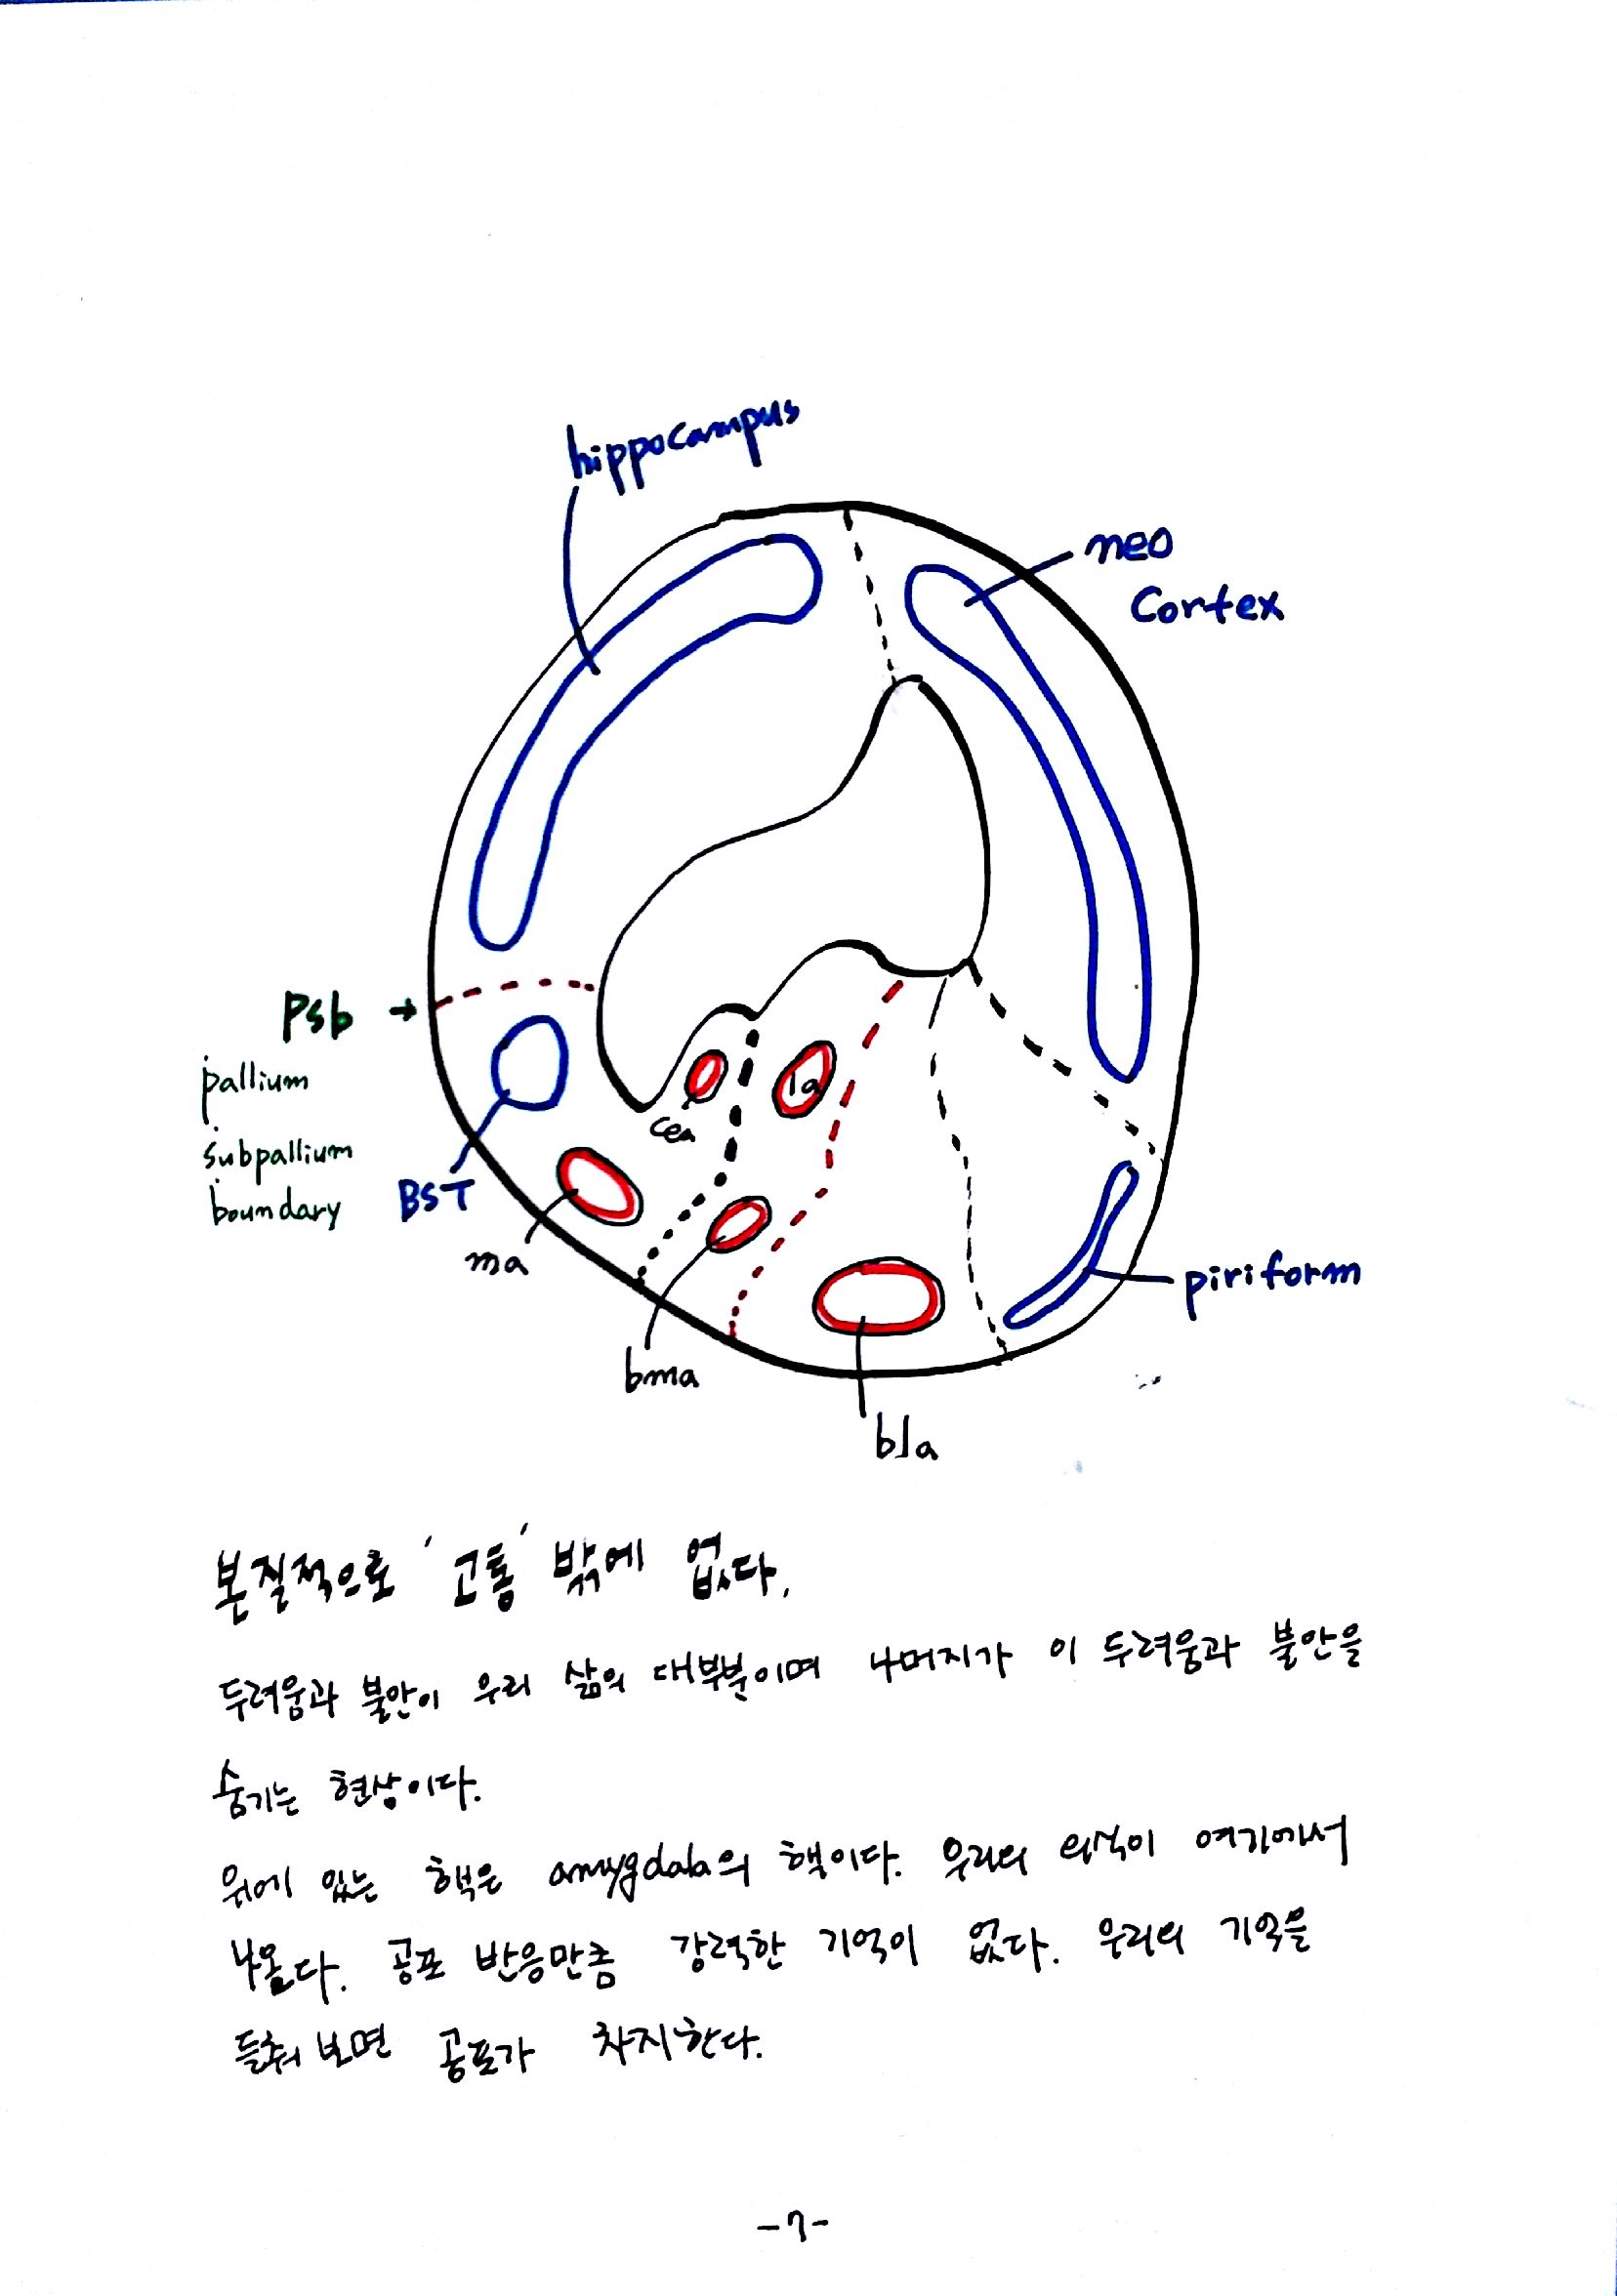 hippocampus
neo
Cortex
Psb →
pallium
subpallium
boundary
BST
cea
la
ma
bma
bla
piriform
본질적으로 '고통' 밖에 없다.
두려움과 불안이 우리 삶의 대부분이며 나머지가 이 두려움과 불안을
숨기는 현상이다.
위에 있는 핵은 amygdala의 핵이다. 우리의 의식이 여기에서
나온다. 공포 반응만큼 강력한 기억이 없다. 우리의 기억을
들춰보면 공포가 차지한다.
-7-